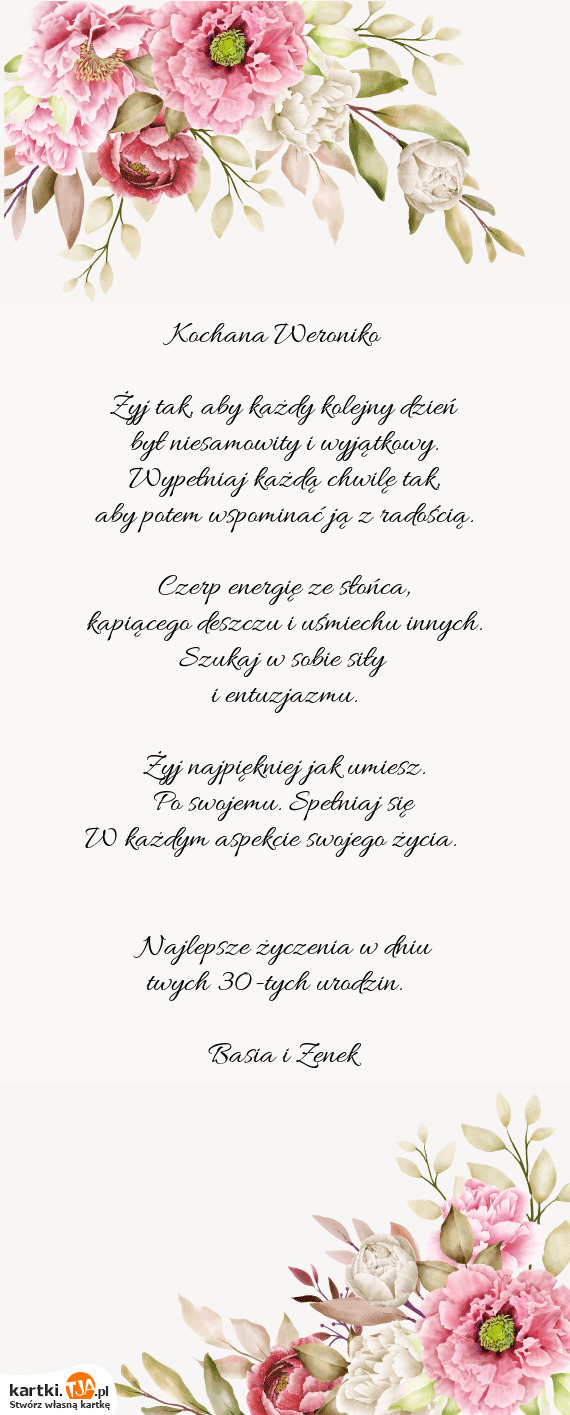 Kochana Weroniko
Żyj tak, aby każdy kolejny dzień
był niesamowity i wyjątkowy.
Wypełniaj każdą chwilę tak,
aby potem wspominać ją z radością.
Czerp energię ze słońca,
kapiącego deszczu i uśmiechu innych.
Szukaj w sobie siły
i entuzjazmu.
Żyj najpiękniej jak umiesz.
Po swojemu. Spełniaj się
W każdym aspekcie swojego życia.
Najlepsze życzenia w dniu
twych 30-tych urodzin.
Basia i Zenek
kartki.TJA.pl
Stwórz własną kartkę